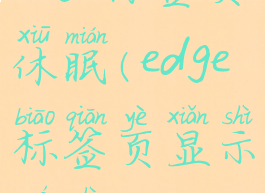 xiū mián
休眠(edge
biāo qiān yè xiǎn shì
标签页显示